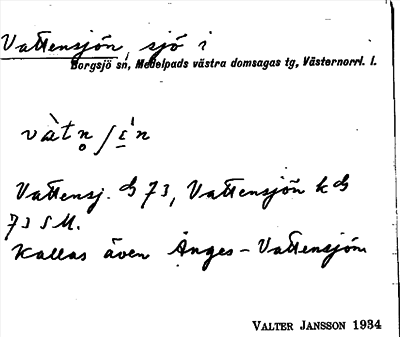 Vattensjön, sjö i
Borgsjö sn, Medelpads västra domsagas tg, Västernorrl. l.
vàtn̥ʃɛ̠̍n
Vattensj. G 73, Vattensjön k G
73 S M.
Kallas även Ånges-Vattensjön
VALTER JANSSON 1934